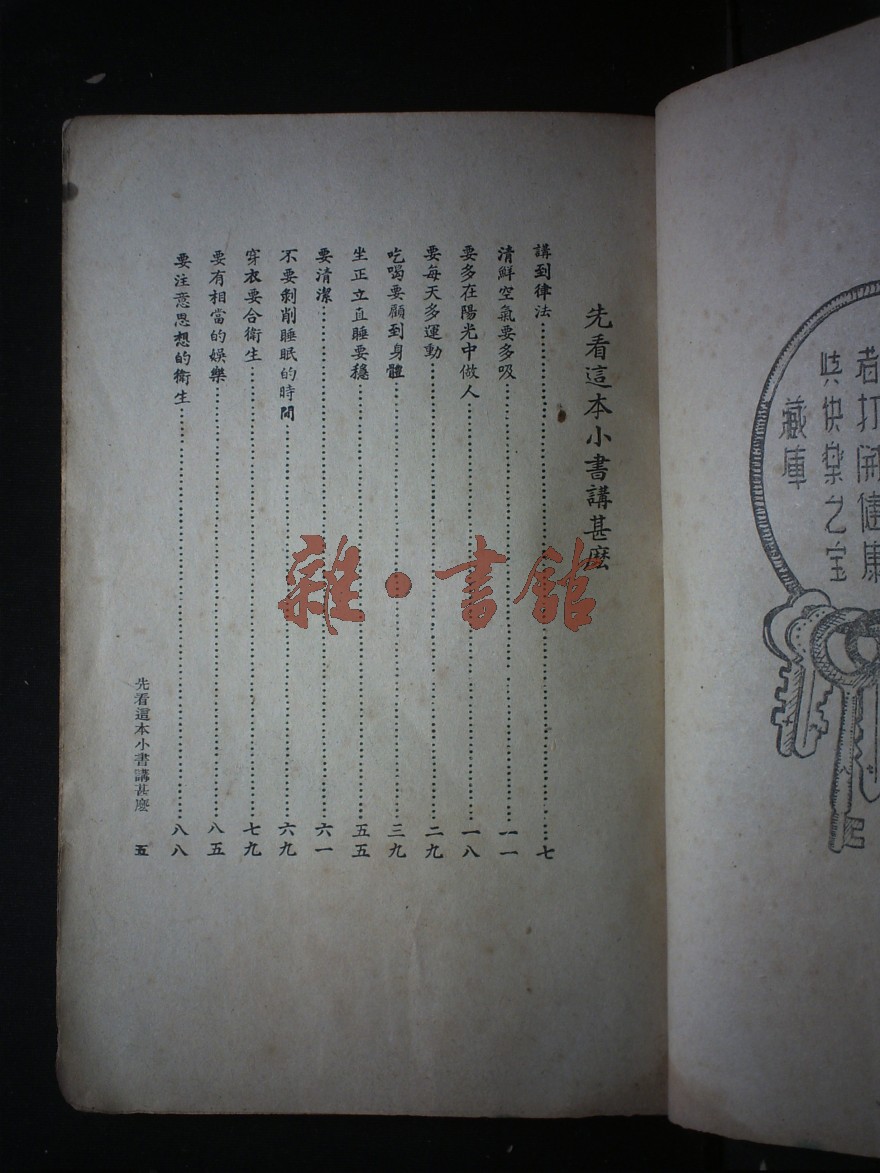 者打開健康
與快樂之宝
藏庫
先看這本小書講甚麽
講到律法……七
清鮮空氣要多吸……一一
要多在陽光中做人……一八
要每天多運動……二九
吃喝要顧到身體……三九
坐正立直睡要穩……五五
要清潔……六一
不要剝削睡眠的時間……六九
穿衣要合衛生……七九
要有相當的娛樂……八五
要注意思想的衛生……八八
先看這本小書講甚麽 五
雜·書館